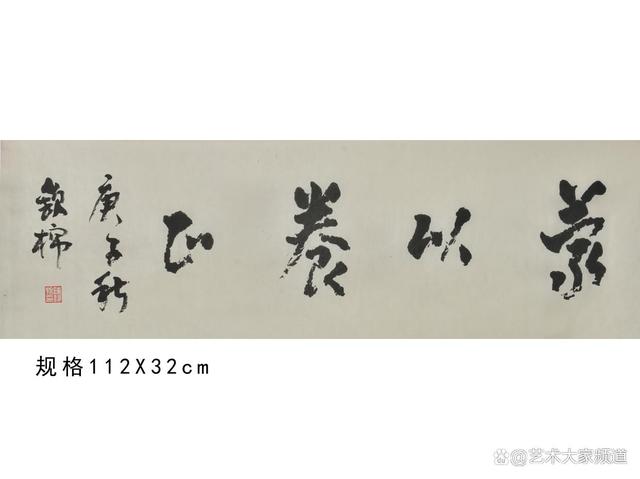 蒙以養正
庚午秋
鎮棉
规格112X32cm
艺术大家频道